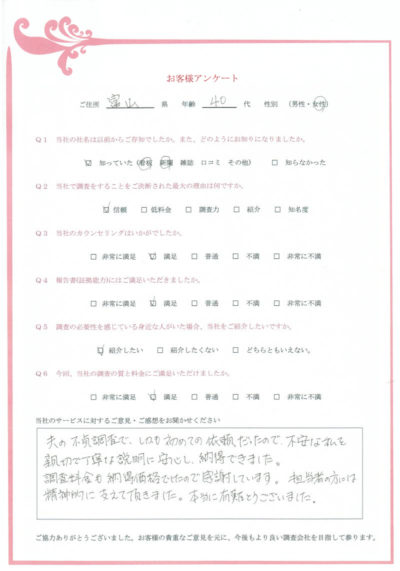 お客様アンケート
ご住所 富山 県 年齢 40 代 性別 （男性・女性）
Q1 当社の社名は以前からご存知でしたか。また、どのようにお知りになりましたか。
☑ 知っていた（看板 新聞 雑誌 口コミ その他） □ 知らなかった
Q2 当社で調査をすることをご決断された最大の理由は何ですか。
☑ 信頼 □ 低料金 □ 調査力 □ 紹介 □ 知名度
Q3 当社のカウンセリングはいかがでしたか。
□ 非常に満足 ☑ 満足 □ 普通 □ 不満 □ 非常に不満
Q4 報告書(証拠能力)にはご満足いただきましたか。
□ 非常に満足 ☑ 満足 □ 普通 □ 不満 □ 非常に不満
Q5 調査の必要性を感じている身近な人がいた場合、当社をご紹介したいですか。
☑ 紹介したい □ 紹介したくない □ どちらともいえない。
Q6 今回、当社の調査の質と料金にご満足いただけましたか。
□ 非常に満足 ☑ 満足 □ 普通 □ 不満 □ 非常に不満
当社のサービスに対するご意見・ご感想をお聞かせください
夫の不貞調査で、しかも初めての依頼だったので、不安な私を
親切で丁寧な説明に安心し、納得できました。
調査料金も納得価格でしたので感謝しています。担当者の方には
精神的に支えて頂きました。本当に有難とうございました。
ご協力ありがとうございました。お客様の貴重なご意見を元に、今後もより良い調査会社を目指して参ります。